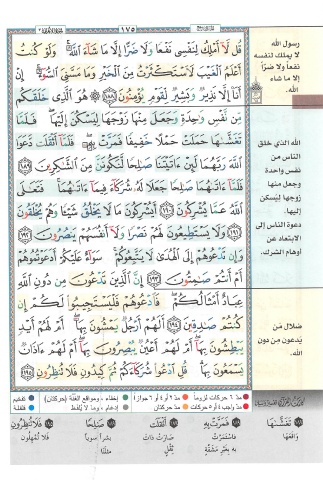 ١٧٥
قُل لَّآ أَمْلِكُ لِنَفْسِى نَفْعًا وَلَا ضَرًّا إِلَّا مَا شَآءَ ٱللَّهُ ۚ وَلَوْ كُنتُ
أَعْلَمُ ٱلْغَيْبَ لَٱسْتَكْثَرْتُ مِنَ ٱلْخَيْرِ وَمَا مَسَّنِىَ ٱلسُّوٓءُ ۚ إِنْ
أَنَا۠ إِلَّا نَذِيرٌ وَبَشِيرٌ لِّقَوْمٍ يُؤْمِنُونَ ١٨٨ هُوَ ٱلَّذِى خَلَقَكُم
مِّن نَّفْسٍ وَٰحِدَةٍ وَجَعَلَ مِنْهَا زَوْجَهَا لِيَسْكُنَ إِلَيْهَا ۖ فَلَمَّا
تَغَشَّىٰهَا حَمَلَتْ حَمْلًا خَفِيفًا فَمَرَّتْ بِهِۦ ۖ فَلَمَّآ أَثْقَلَت دَّعَوَا
ٱللَّهَ رَبَّهُمَا لَئِنْ ءَاتَيْتَنَا صَٰلِحًا لَّنَكُونَنَّ مِنَ ٱلشَّٰكِرِينَ ١٨٩
فَلَمَّآ ءَاتَىٰهُمَا صَٰلِحًا جَعَلَا لَهُۥ شُرَكَآءَ فِيمَآ ءَاتَىٰهُمَا ۚ فَتَعَٰلَى
ٱللَّهُ عَمَّا يُشْرِكُونَ ١٩٠ أَيُشْرِكُونَ مَا لَا يَخْلُقُ شَيْـًٔا وَهُمْ يُخْلَقُونَ
١٩١ وَلَا يَسْتَطِيعُونَ لَهُمْ نَصْرًا وَلَآ أَنفُسَهُمْ يَنصُرُونَ ١٩٢
وَإِن تَدْعُوهُمْ إِلَى ٱلْهُدَىٰ لَا يَتَّبِعُوكُمْ ۚ سَوَآءٌ عَلَيْكُمْ أَدَعَوْتُمُوهُمْ
أَمْ أَنتُمْ صَٰمِتُونَ ١٩٣ إِنَّ ٱلَّذِينَ تَدْعُونَ مِن دُونِ ٱللَّهِ
عِبَادٌ أَمْثَالُكُمْ ۖ فَٱدْعُوهُمْ فَلْيَسْتَجِيبُوا۟ لَكُمْ إِن
كُنتُمْ صَٰدِقِينَ ١٩٤ أَلَهُمْ أَرْجُلٌ يَمْشُونَ بِهَآ ۖ أَمْ لَهُمْ أَيْدٍ
يَبْطِشُونَ بِهَآ ۖ أَمْ لَهُمْ أَعْيُنٌ يُبْصِرُونَ بِهَآ ۖ أَمْ لَهُمْ ءَاذَانٌ
يَسْمَعُونَ بِهَا ۗ قُلِ ٱدْعُوا۟ شُرَكَآءَكُمْ ثُمَّ كِيدُونِ فَلَا تُنظِرُونِ ١٩٥
رسول الله
لا يملك لنفسه
نفعاً ولا ضرّاً
إلا ما شاء
الله.
الله الذي خلق
الناس من
نفس واحدة
وجعل منها
زوجها ليسكن
إليها.
دعوة الناس إلى
الابتعاد عن
أوهام الشرك.
ضلال من
يَدعون من دون
الله.
مدّ ٦ حركات لزوماً
مدّ ٢ أو ٤ أو ٦ جوازاً
إخفاء، ومواقع الغُنَّة (حركتان)
تفخيم
مدّ واجب ٤ أو ٥ حركات
مدّ حركتان
إدغام، وما لا يُلفظ
قلقلة
تَغَشَّاهَا
واقَعَها
فَمَرَّتْ بِهِ
فاستمرَّت
به بغير مشقّة
أَثْقَلَت
صارت ذات
ثِقَلٍ
صَالِحًا
بشراً سوياً
مثلنا
فَلَا تُنظِرُونِ
فلا تُمهلون